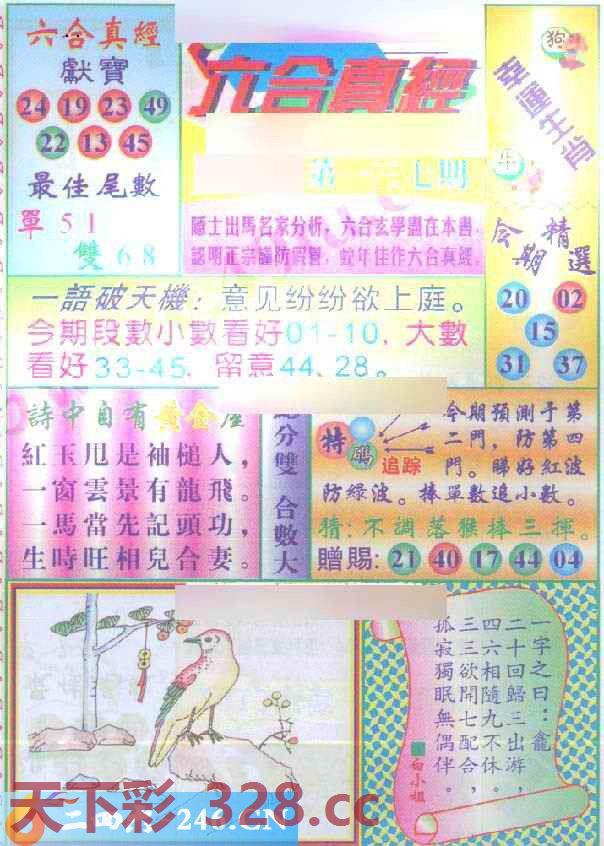 六合真經
獻寶
24 19 23 49
22 13 45
最佳尾數
單 51
雙 68
六合真經
隱士出馬名家分析，六合玄學盡在本書，
認明正宗謹防假冒，蛇年佳作六合真經。
狗
幸運生肖
牛
今期精選
20 02
15
31 37
一語破天機：意见纷纷欲上庭。
今期段數小數看好01-10，大數
看好33-45，留意44、28。
詩中自有黃金屋
紅玉甩是袖槌人，
一窗雲景有龍飛。
一馬當先記頭功，
生時旺相兒合妻。
分雙 合數大
特碼
追踪
今期預測于第
二門，防第四
門。睇好紅波
防綠波。捧單數追小數。
猜：不調落猴捧三揮。
贈賜：21 40 17 44 04
一字之曰：龕
二十回歸三出游，
四六相隨九不休。
三三欲開七配合，
孤寂獨眠無偶伴。
白小姐
天下彩 328.cc
246.CN